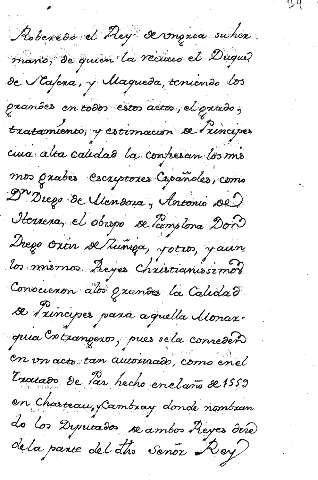 Roberedo el Rey de vngria su her
mano, de quien la reciuio el Duque
de Naxera, y Maqueda, teniendo los
grandes en todos estos actos, el grado,
tratamiento, y estimacion de Principes
cuia alta calidad la confiesan los mis
mos grabes escriptores Españoles, como
Dn Diego de Mendoza, y Antonio de
Herrera, el obispo de Pamplona Don
Diego Ortiz de Zuñiga, y otros, y aun
los mismos Reyes Christianissimos
Conocieron a los grandes la Calidad
de Principes para aquella Monar
quia Extrangeros, pues se la conceden
en un acto tan autorizado, como en el
tratado de Paz hecho en el año de 1559
en Chasteau, y Cambray donde nombran
do los Diputados de ambos Reyes dize
de la parte del dho Señor Rey